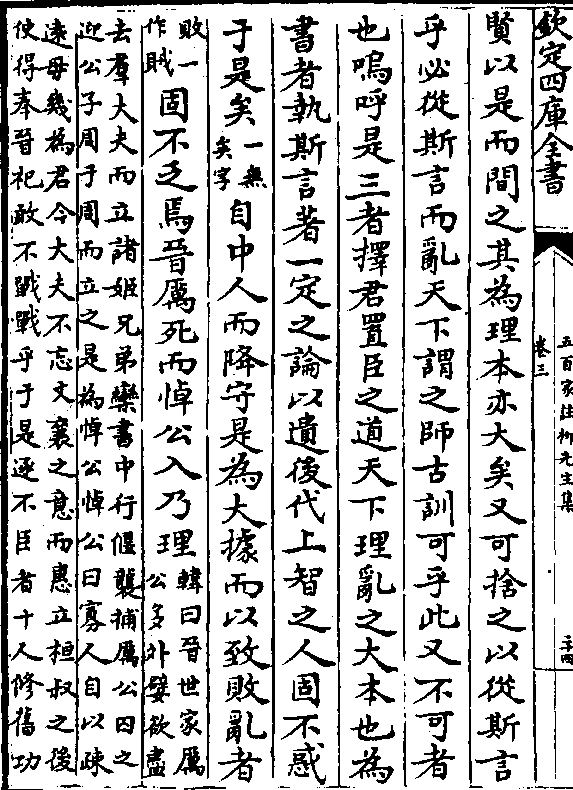 欽定四庫全書
五百家注柳先生集
卷三
二十四
賢以是而間之其為理本亦大矣又可捨之以從斯言
乎必從斯言而亂天下謂之師古訓可乎此又不可者
也嗚呼是三者擇君置臣之道天下理亂之大本也為
書者執斯言著一定之論以遺後代上智之人固不惑
于是矣一無矣字自中人而降守是為大據而以致敗亂者
敗一作賊固不乏焉晉厲死而悼公入乃理韓曰晉世家厲公多外嬖欲盡
去羣大夫而立諸姬兄弟欒書中行偃襲捕厲公囚之
迎公子周于周而立之是為悼公悼公曰寡人自以疎
遠毋幾為君今大夫不忘文襄之意而惠立桓叔之後
使得奉晉祀敢不戰戰乎于是逐不臣者十人修舊功